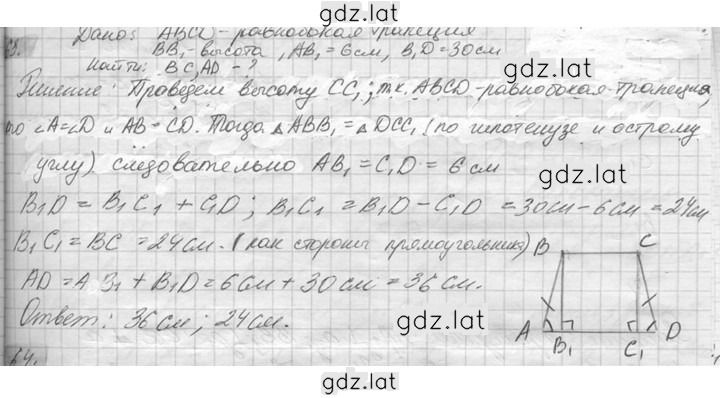 gdz.lat
Дано: ABCD - равнобокая трапеция
63. BB₁ - высота, AB₁ = 6 см, B₁D = 30 см
Найти: BC, AD - ?
Решение: Проведем высоту CC₁; т.к. ABCD - равнобокая трапеция,
то ∠A = ∠D и AB = CD. Тогда △ABB₁ = △DCC₁ (по гипотенузе и острому
углу) следовательно AB₁ = C₁D = 6 см
gdz.lat
B₁D = B₁C₁ + C₁D; B₁C₁ = B₁D - C₁D = 30 см - 6 см = 24 см
B₁C₁ = BC = 24 см. (как стороны прямоугольника)
B C
AD = AB₁ + B₁D = 6 см + 30 см = 36 см.
Ответ: 36 см; 24 см.
gdz.lat
A B₁ C₁ D
64.
gdz.lat